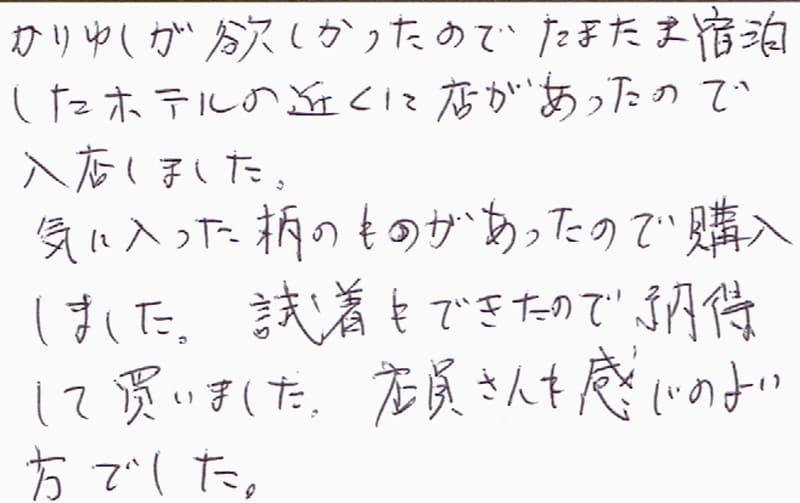 かりゆしが欲しかったのでたまたま宿泊
したホテルの近くに店があったので
入店しました。
気に入った柄のものがあったので購入
しました。試着もできたので納得
して買いました。店員さんも感じのよい
方でした。